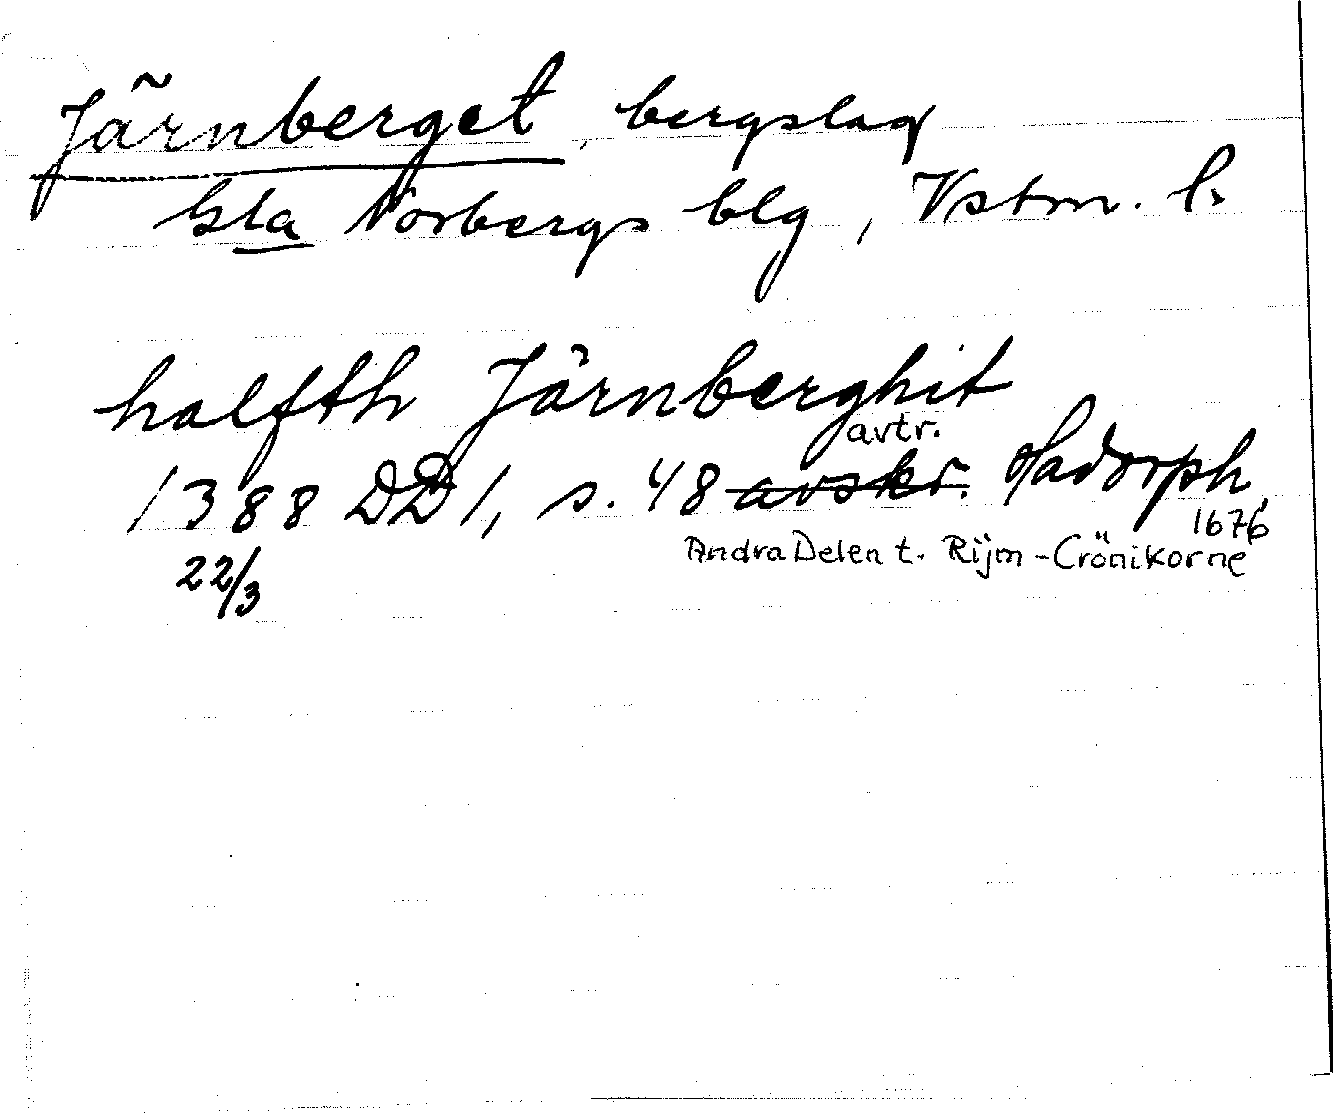 Järnberget, bergslag
Gla Norbergs blg, Vstm. l.
halfth Järnberghit
1388 DD 1, s. 48 avskr. avtr. Hadorph,
22/3 Andra Delen t. Rijm-Crönikorne 1676